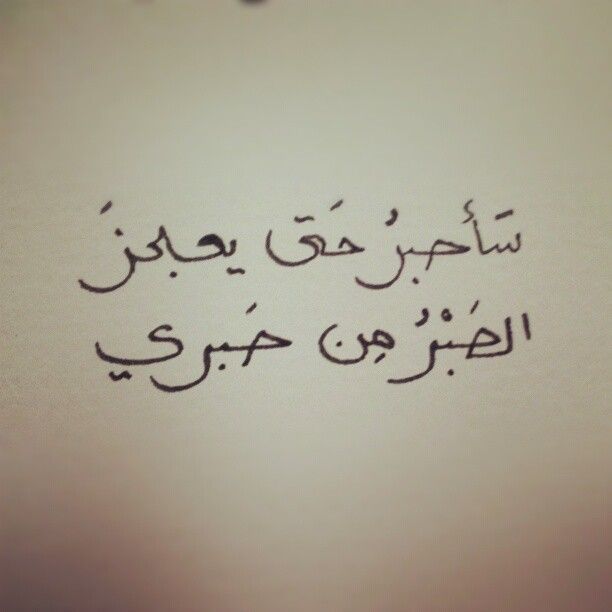 سَأصبرُ حَتى يعجزَ
الصَبْرُ مِن صَبري